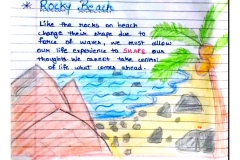 * Rocky Beach
Like the rocks on beach
change their shape due to
force of waves, we must allow
our life experience to SHAPE our
thoughts. We cannot take control
of life what comes ahead.